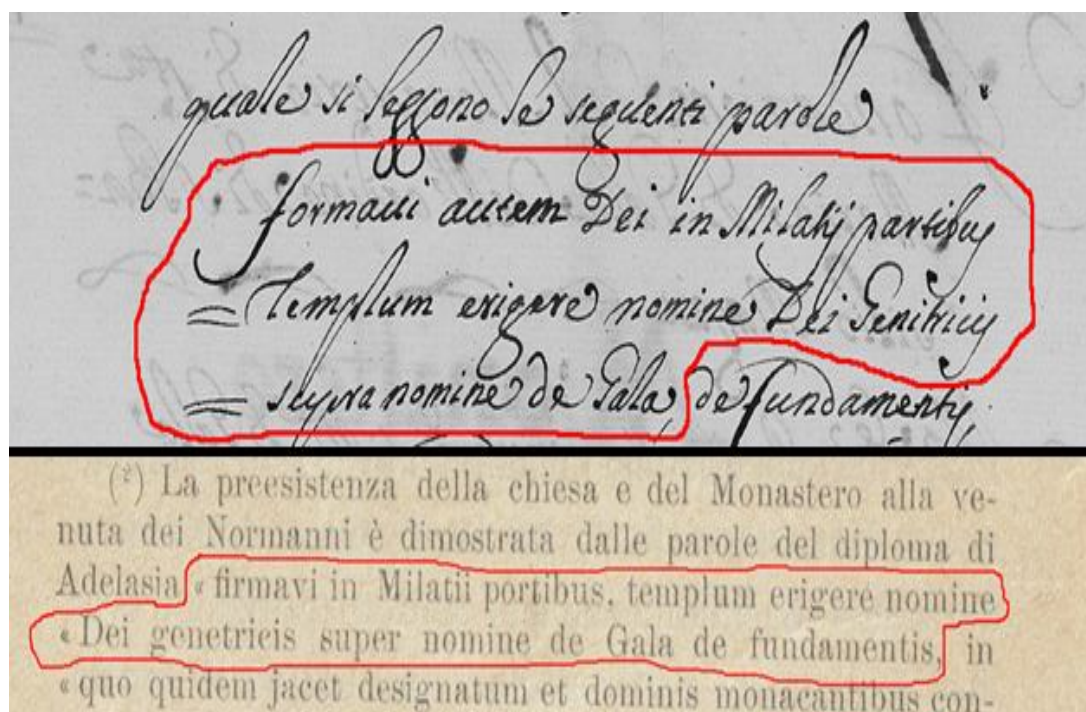 quale si leggono le seguenti parole
formaui autem Dei in Milatij partibus
= Templum erigere nomine Dei Genitricis
= supra nomine de Gala de fundamentis
(²) La preesistenza della chiesa e del Monastero alla ve-
nuta dei Normanni è dimostrata dalle parole del diploma di
Adelasia « firmavi in Milatii portibus, templum erigere nomine
« Dei genetricis super nomine de Gala de fundamentis, in
« quo quidem jacet designatum et dominis monacantibus con-